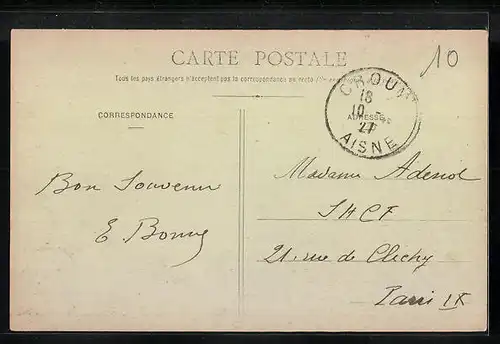 CARTE POSTALE
10
Tous les pays étrangers n'acceptent pas la correspondance au recto
CORRESPONDANCE
ADRESSE
CROUY
18
10 -
27
AISNE
Bon Souvenir
E. Bonny
Madame
21 rue de Clichy
Paris IX